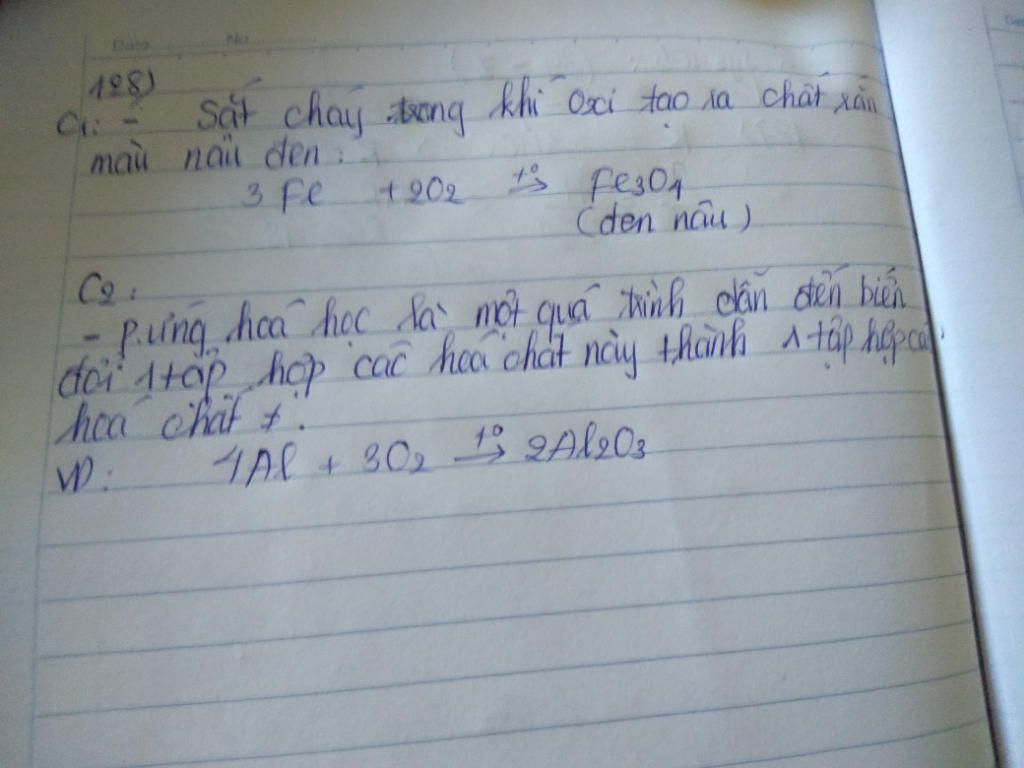 Date No
128)
C1: - Sắt cháy trong khí oxi tạo ra chất rắn
màu nâu đen:
3Fe + 2O2 t° → Fe3O4
(đen nâu)
C2:
- P.ứng hoá học là một quá trình dẫn đến biến
đổi 1 tập hợp các hoá chất này thành 1 tập hợp các
hoá chất ≠.
VD: 4Al + 3O2 t° → 2Al2O3